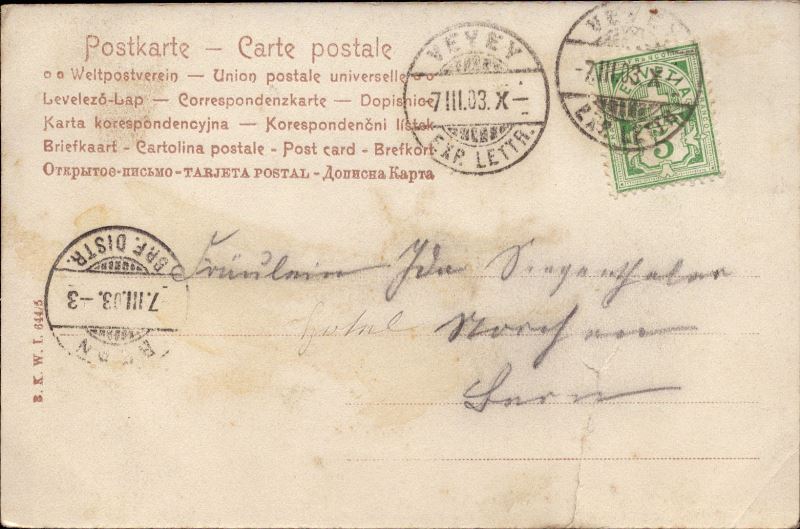 Postkarte — Carte postale
Weltpostverein — Union postale universelle
Levelező-Lap — Correspondenzkarte — Dopisnice
Karta korespondencyjna — Korespondenční lístek
Briefkaart - Cartolina postale - Post card - Brefkort
Открытое-письмо - TARJETA POSTAL - Дописна Карта
VEVEY
7.III.03. X —
EXP. LETTR.
VEVEY
-7.III.03. X
EXP. LETTR.
FRANCO
HELVETIA
5
BRF. DISTR.
7.III.03. - 3
BERN
Fräulein Ida Siegenthaler
Hotel
Bern
B. K. W. I. 644/5